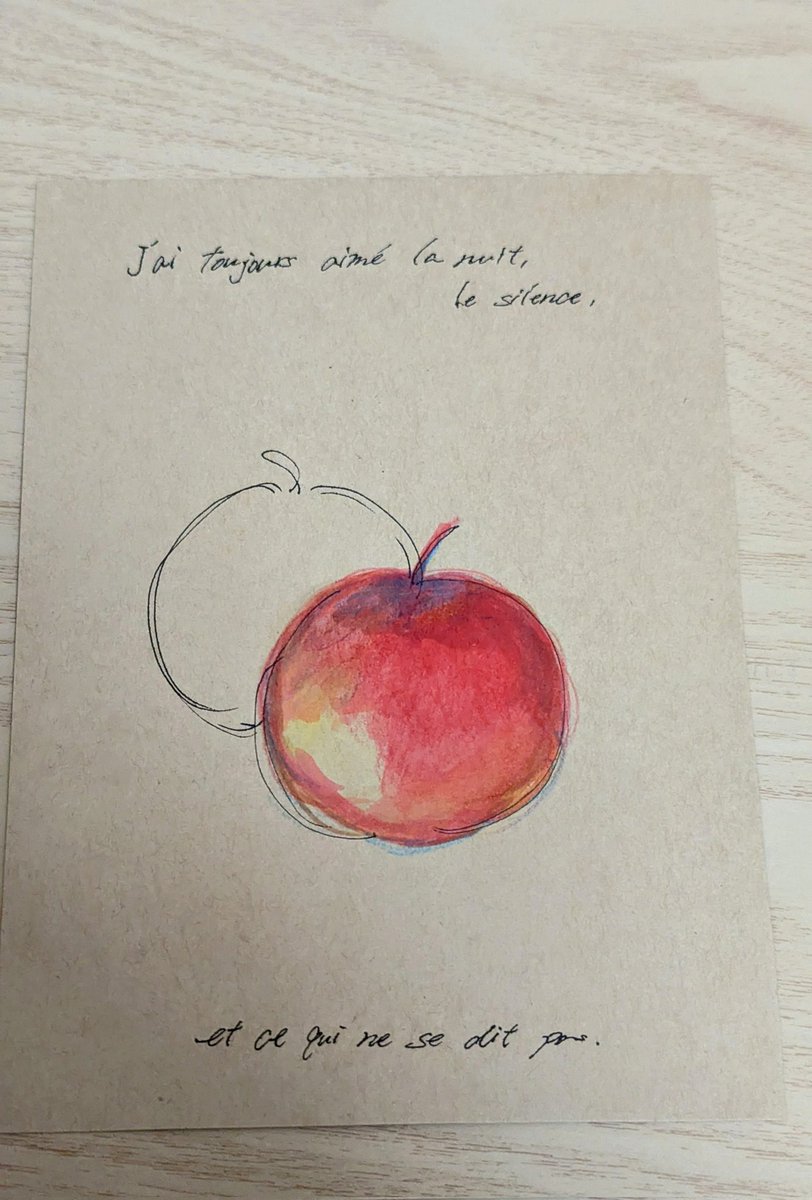 J'ai toujours aimé la nuit,
le silence,
et ce qui ne se dit pas.